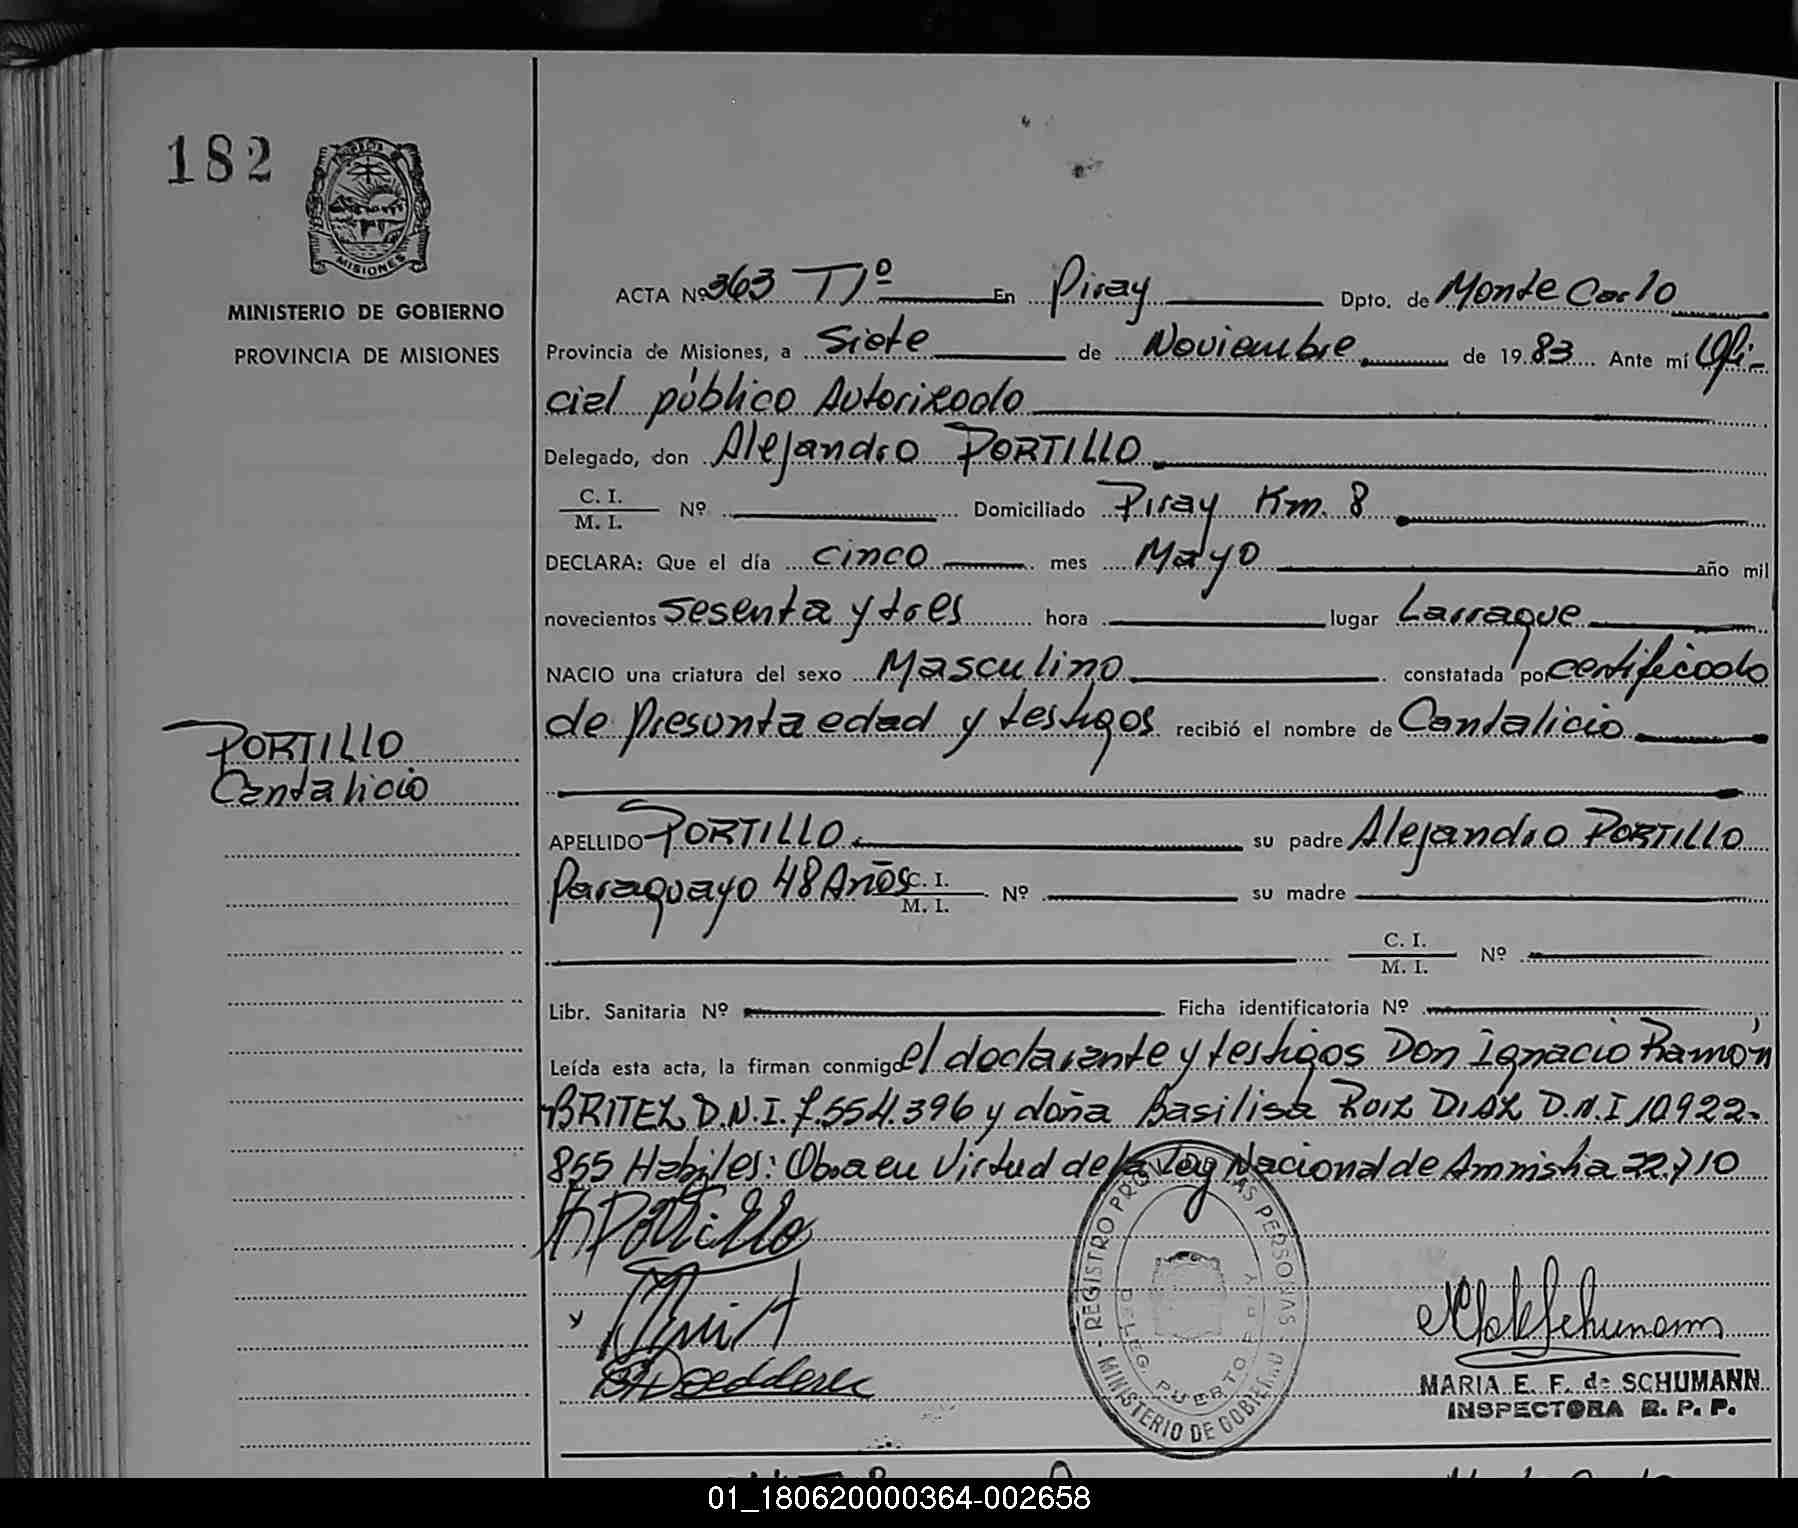 182
MISIONES
MINISTERIO DE GOBIERNO
PROVINCIA DE MISIONES
PORTILLO
Cantalicio
ACTA Nº 363 TIº En Piray Dpto. de Monte Carlo
Provincia de Misiones, a Siete de Noviembre de 1983 Ante mí Ofi-
cial público Autorizado
Delegado, don Alejandro PORTILLO
C. I.
M. I. Nº Domiciliado Piray Km. 8
DECLARA: Que el día cinco mes Mayo año mil
novecientos sesenta y tres hora lugar Larraque
NACIO una criatura del sexo Masculino constatada por certificado
de Presunta edad y testigos recibió el nombre de Cantalicio
APELLIDO PORTILLO su padre Alejandro PORTILLO
Paraguayo 48 Años C. I.
M. I. Nº su madre
C. I.
M. I. Nº
Libr. Sanitaria Nº Ficha identificatoria Nº
Leída esta acta, la firman conmigo el declarante y testigos Don Ignacio Ramón
BRITEZ D.N.I. 7.554.396 y doña Basilisa RUIZ DIAZ D.N.I 10.922.
855 Habiles: Obra en Virtud de la Ley Nacional de Amnistia 22.710
A Portillo
REGISTRO PROV. DE LAS PERSONAS
MINISTERIO DE GOBIERNO
DELEG. PUERTO PIRAY
Schumann
MARIA E. F. de SCHUMANN
INSPECTORA R. P. P.
01_180620000364-002658